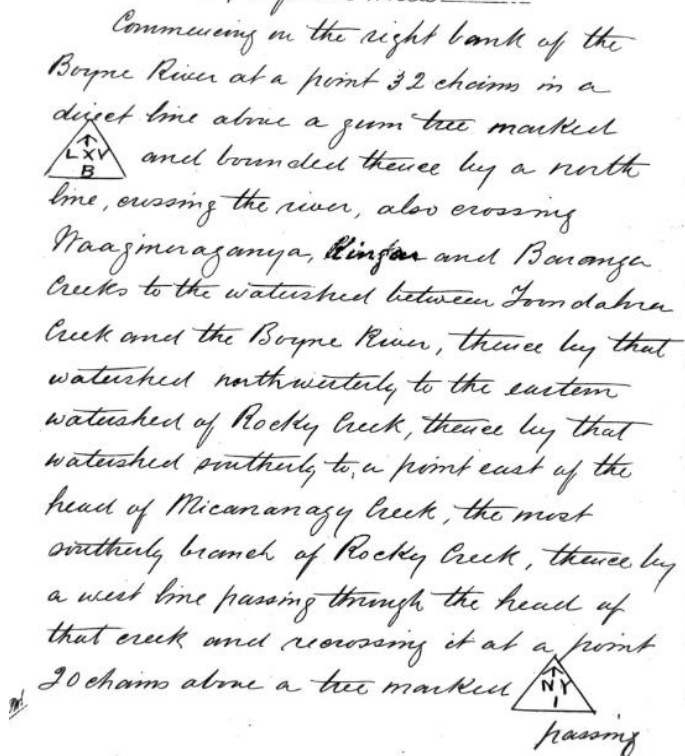 Commencing on the right bank of the
Boyne River at a point 32 chains in a
direct line above a gum tree marked
↑
LXV
B
and bounded thence by a north
line, crossing the river, also crossing
and Baranga
Creeks to the watershed between
Creek and the Boyne River, thence by that
watershed northwesterly to the eastern
watershed of Rocky Creek, thence by that
watershed southerly to a point east of the
head of Micananagy Creek, the most
southerly branch of Rocky Creek, thence by
a west line passing through the head of
that creek and recrossing it at a point
20 chains above a tree marked
↑
NY
1
passing